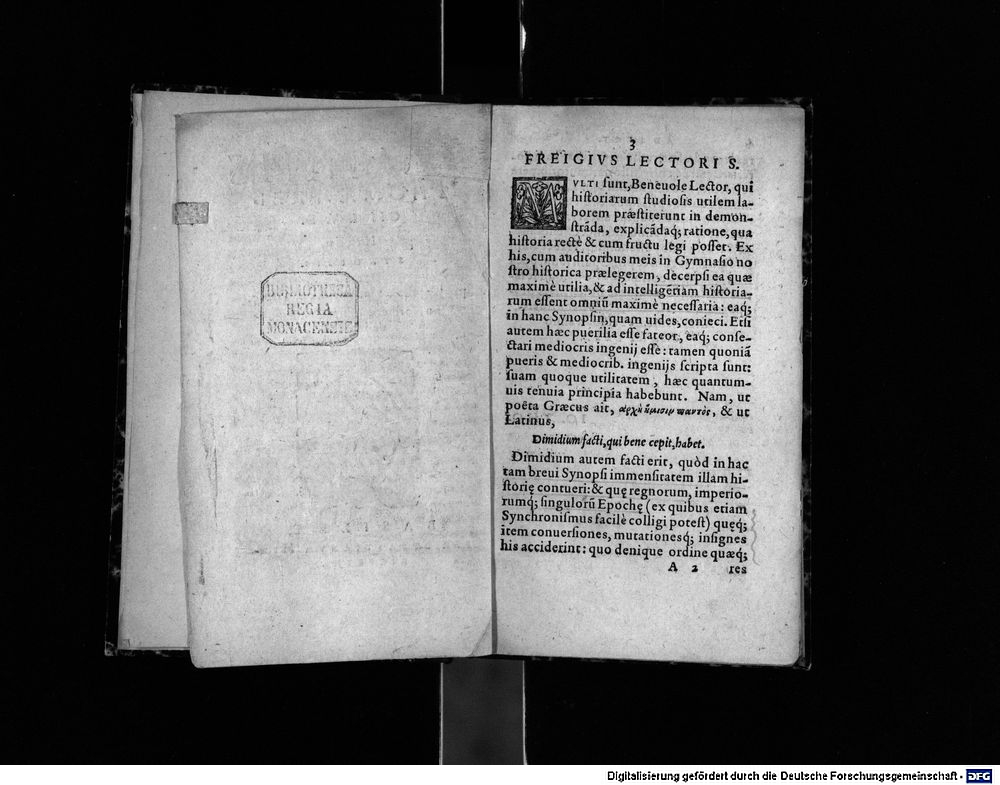 BIBLIOTHECA
REGIA
MONACENSIS
3
FREIGIVS LECTORI S.
MVLTI sunt, Beneuole Lector, qui
historiarum studiosis utilem la-
borem præstiterunt in demon-
strãda, explicãdaq́; ratione, qua
historia rectè & cum fructu legi posset. Ex
his, cum auditoribus meis in Gymnasio no
stro historica prælegerem, decerpsi ea quæ
maximè utilia, & ad intelligẽtiam historia-
rum essent omniũ maximè necessaria: eaq́;
in hanc Synopsin, quam uides, conieci. Etsi
autem hæc puerilia esse fateor, eaq́; conse-
ctari mediocris ingenij esse: tamen quoniã
pueris & mediocrib. ingenijs scripta sunt:
suam quoque utilitatem, hæc quantum-
uis tenuia principia habebunt. Nam, ut
poëta Græcus ait, ἀρχὴ ἥμισυ παντὸς, & ut
Latinus,
Dimidium facti, qui bene cepit, habet.
Dimidium autem facti erit, quòd in hac
tam breui Synopsi immensitatem illam hi-
storię contueri: & quę regnorum, imperio-
rumq́; singulorũ Epochę (ex quibus etiam
Synchronismus facilè colligi potest) quęq́;
item conuersiones, mutationesq́; insignes
his acciderint: quo denique ordine quæq́;
A 2 res
Digitalisierung gefördert durch die Deutsche Forschungsgemeinschaft - DFG